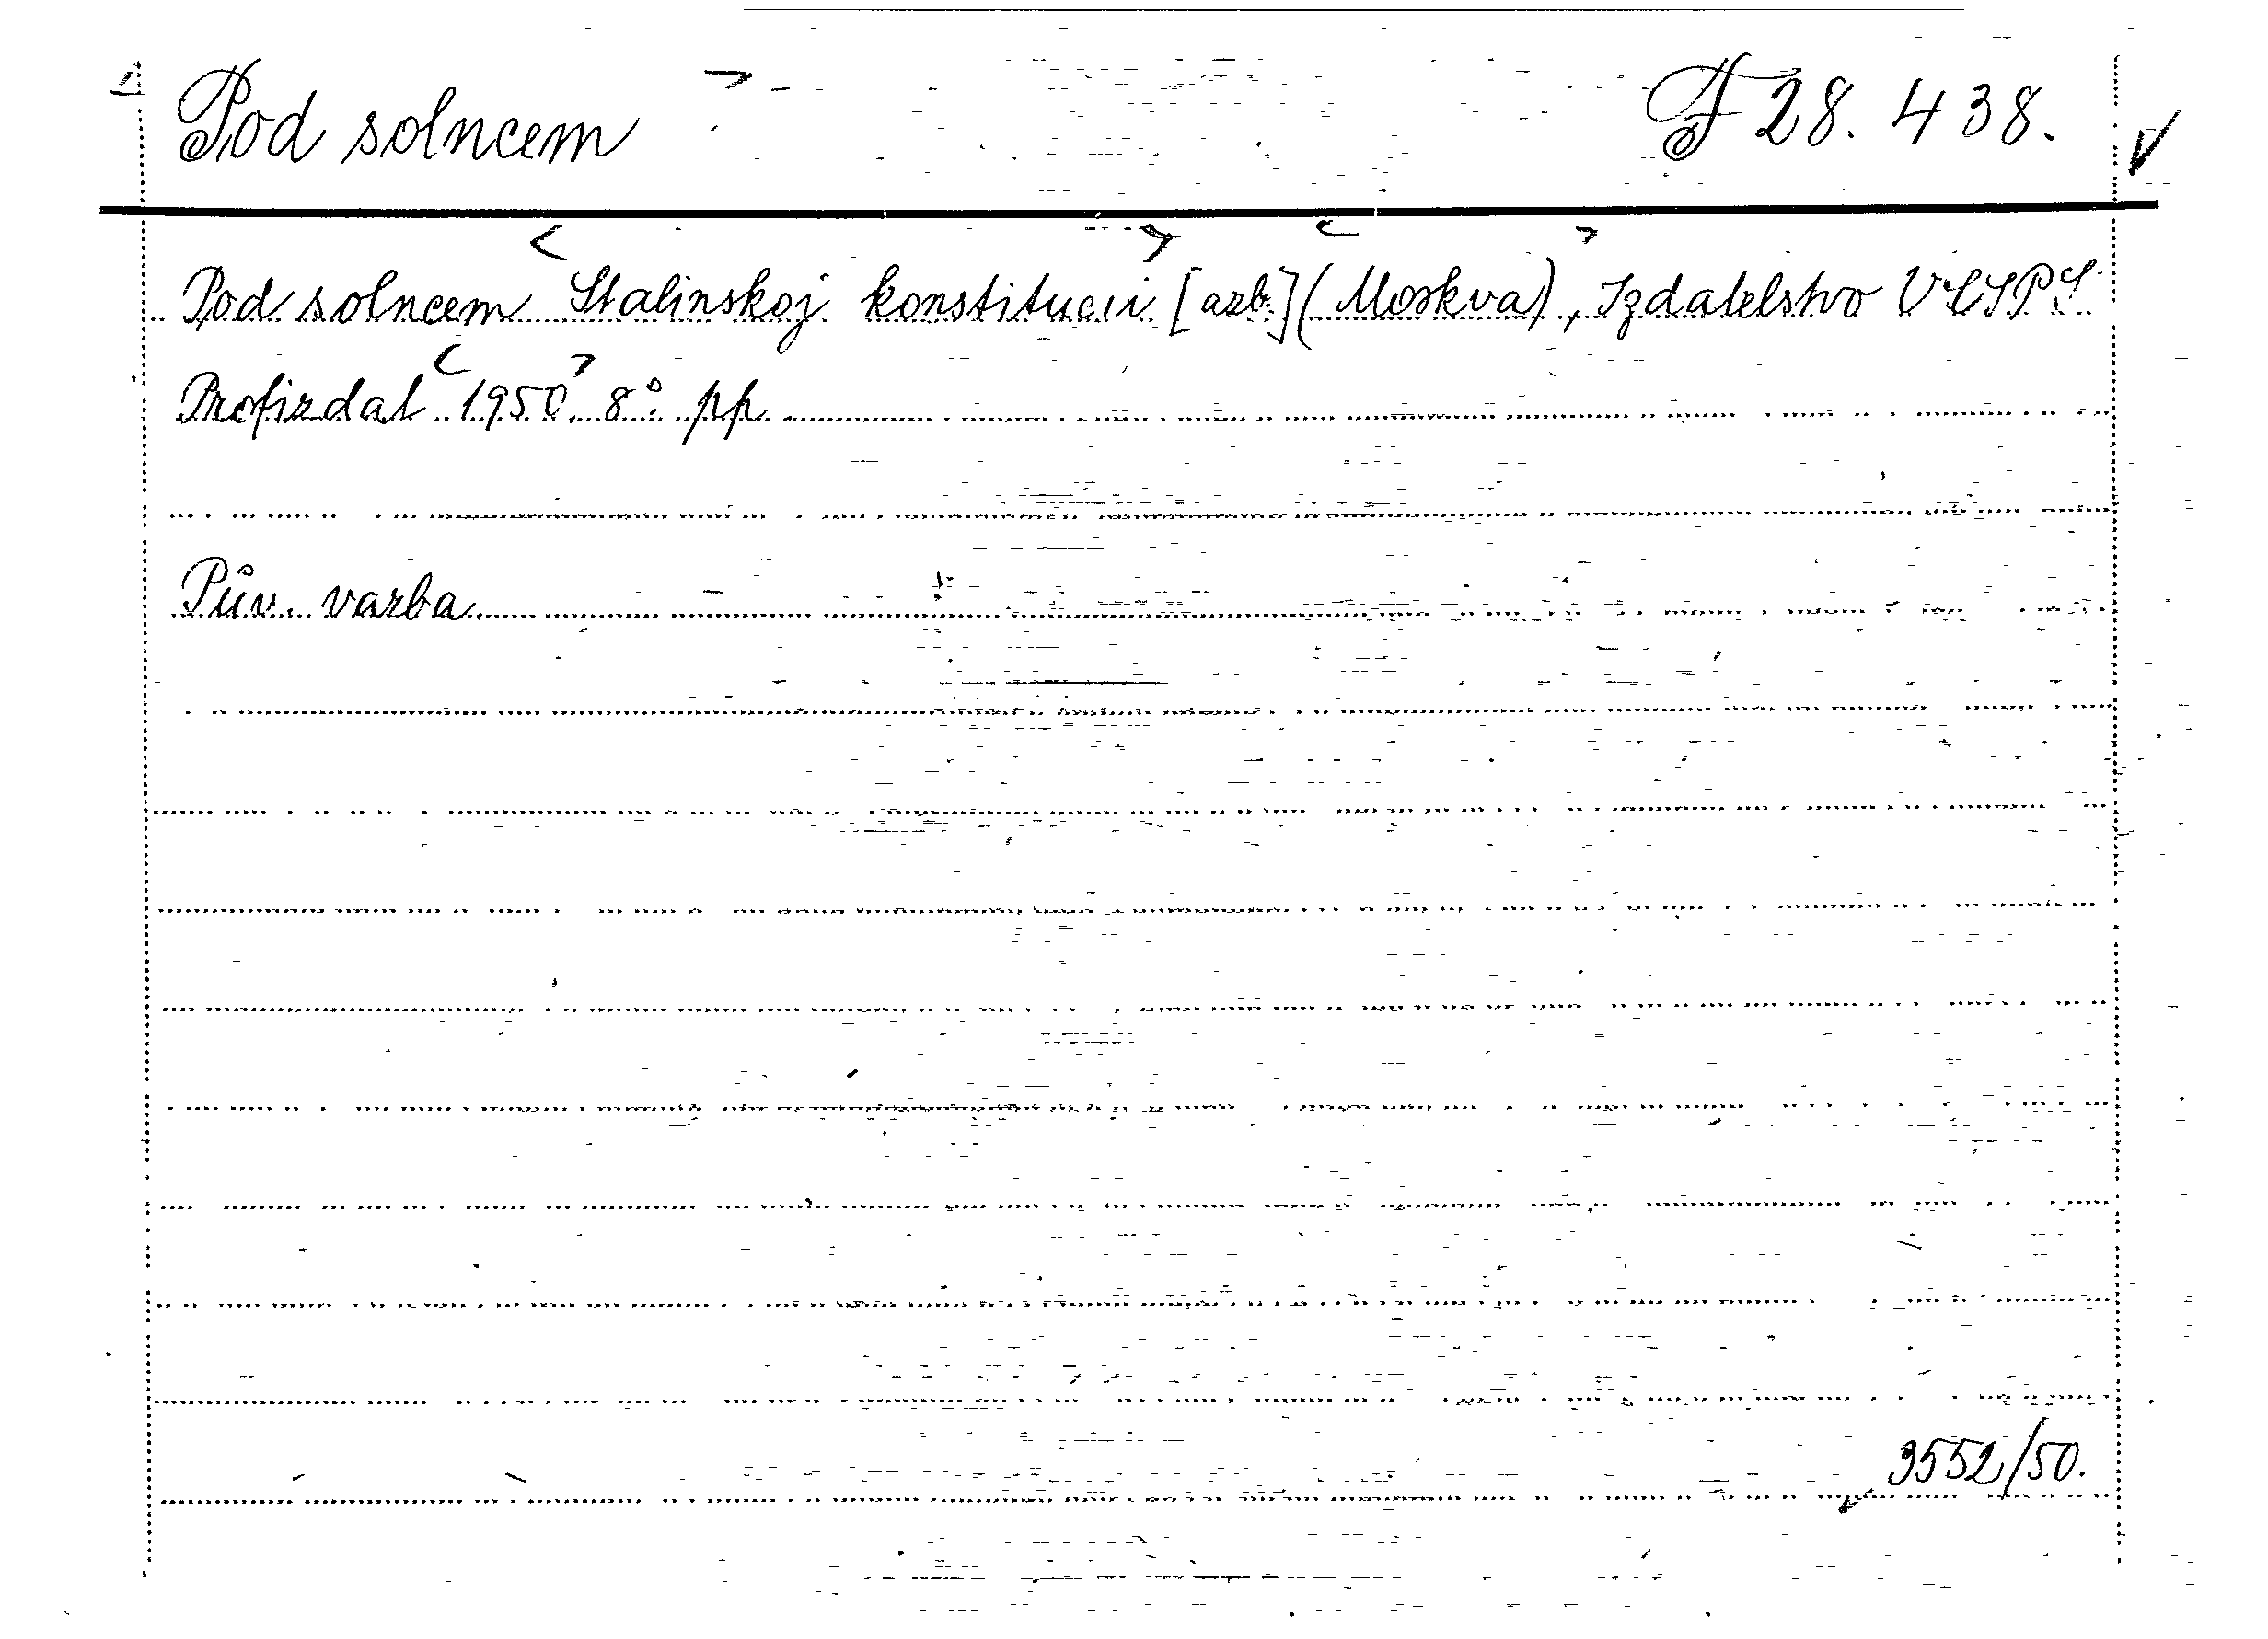 Pod solncem F 28.438.
Pod solncem Stalinskoj konstitucii [azb.] (Moskva), Izdatelstvo VCSPS
Profizdat 1950. 8° pp
Pův. vazba.
3552/50.